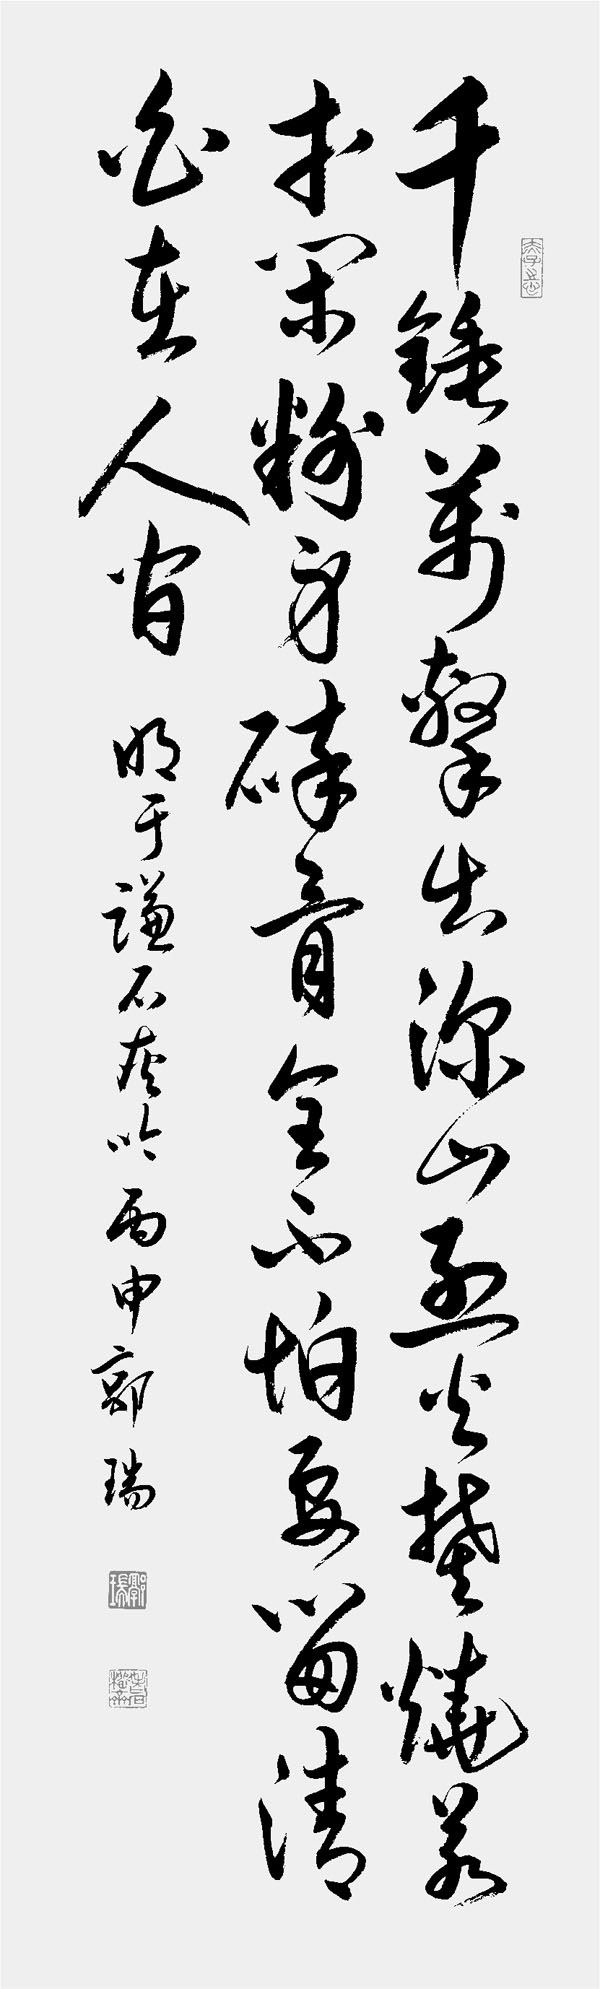 千錘萬擊出深山烈火焚燒若
等閑粉身碎骨全不怕要留清
白在人間 明于謙石灰吟丙申郭瑞
郭瑞